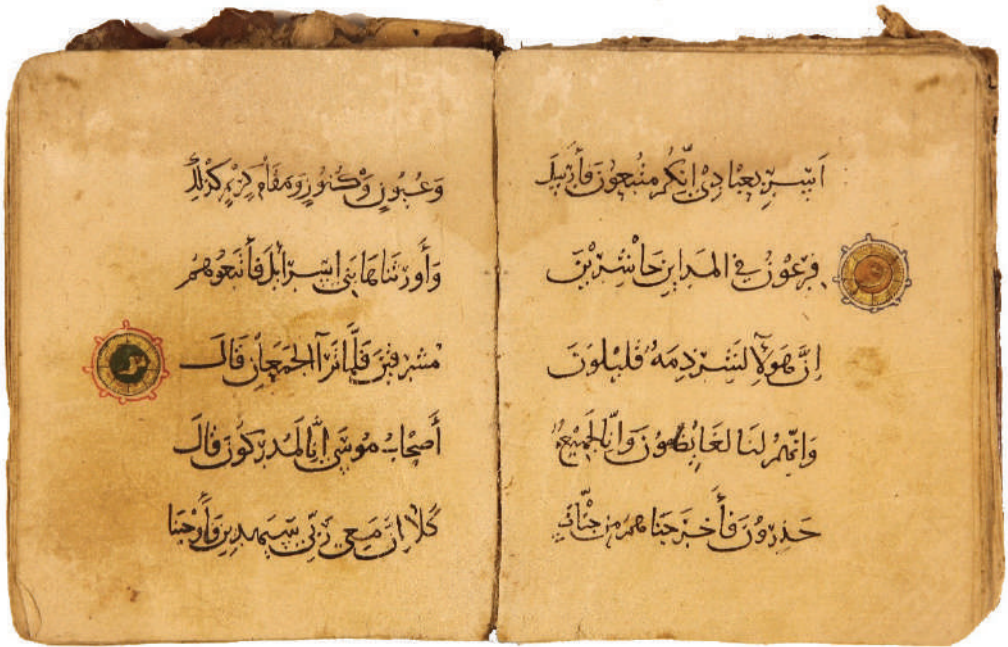 أَسِرِ بعِبَادِي إِنَّكُم مُتَّبَعُونَ فَأَرْسَلَ
فِرْعَوْنُ في المدَاينِ حَاشِرِينَ
إِنَّ هَؤلآءِ لَشِرْذِمَةٌ قَلِيلُونَ
وَإِنَّهُمْ لنَا لغَايظُونَ وَإِنَّا لَجَمِيعٌ
حَذِرُونَ فَأَخرَجنَاهُم مِن جنَّاتٍ
وَعُيُونٍ وَكُنُوزٍ وَمَقَامٍ كَرِيمٍ كَذَلِكَ
وَأَورَثنَاهَا بَنِي إسرَايلَ فَأَتبَعُوهُم
مُشرِقينَ فَلَمَّا تَرَآ الجَمعَانِ قَالَ
أَصْحَابُ مُوسَى إِنَّا لَمُدرَكُونَ قَالَ
كَلَّا إِنَّ مَعِي رَبِّي سَيَهدِينِ وَأَوْحَينَا